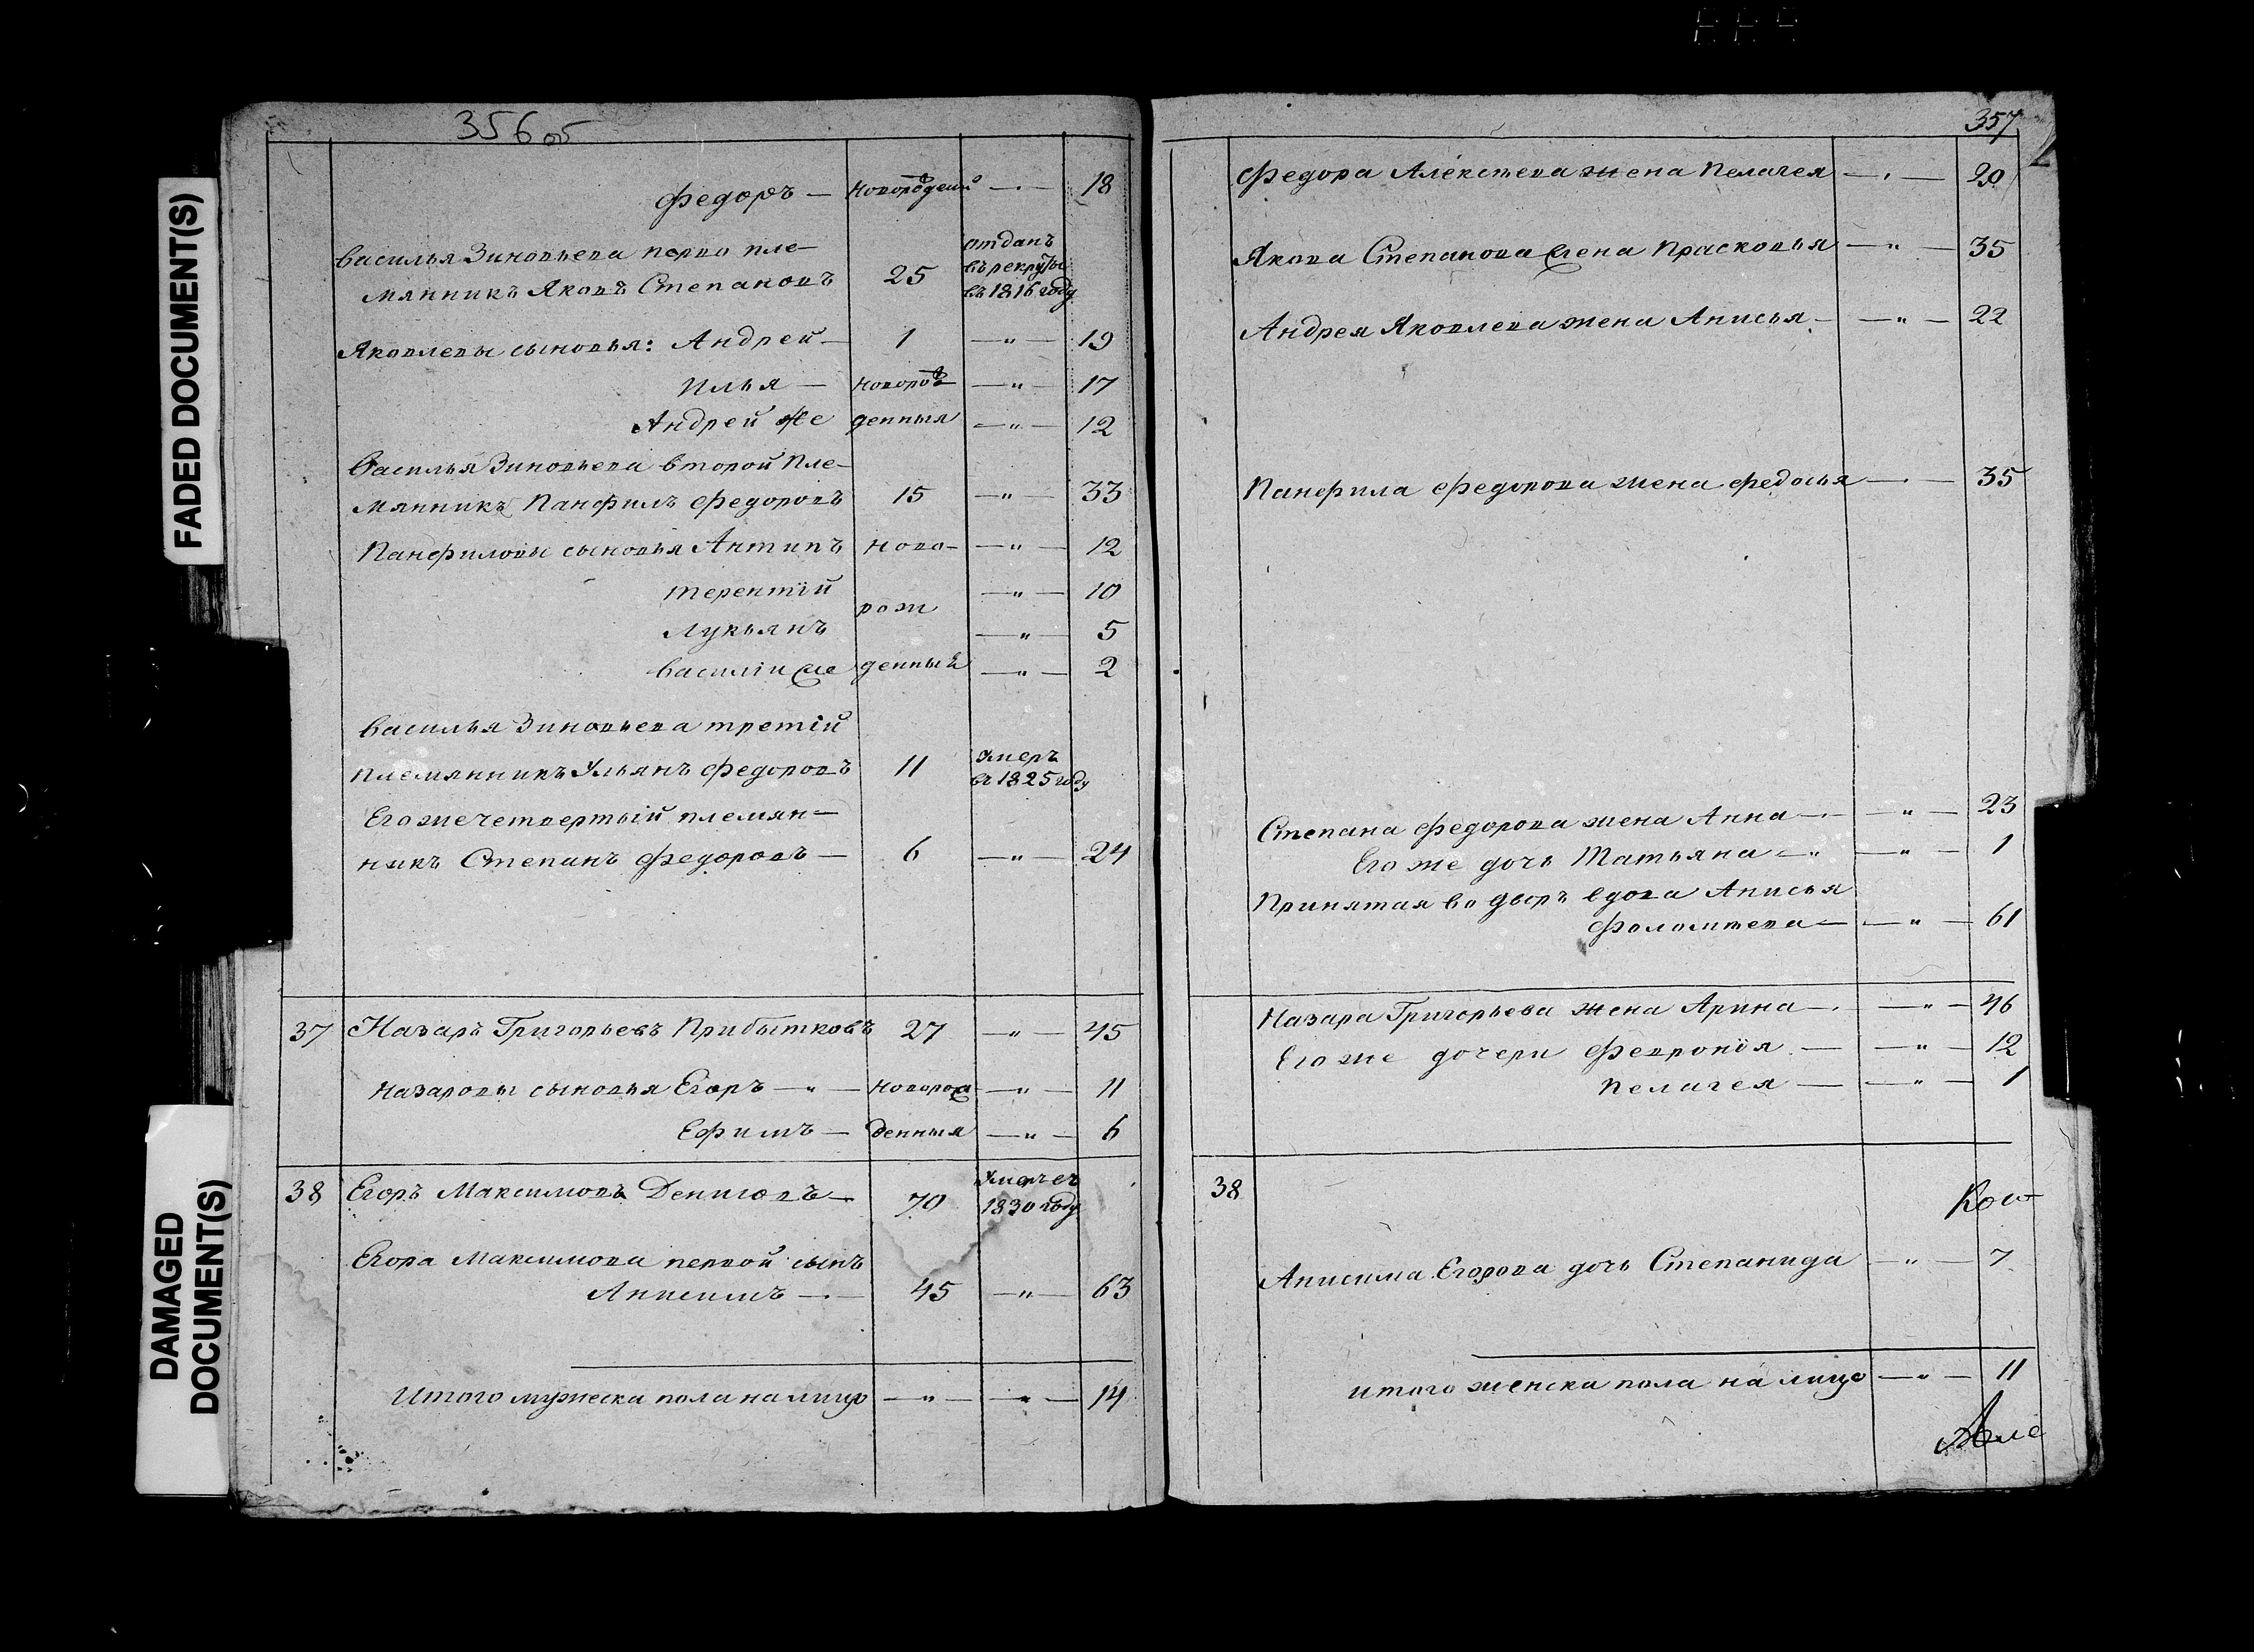 FADED DOCUMENT(S)
DAMAGED
DOCUMENT(S)
356 об
Федоръ — новорожденный — 18
Василья Зиновьева перво пле-
мянникъ Яковъ Степановъ 25 отданъ
въ рекруты
въ 1816 году
Яковлевы сыновья: Андрей — 1 — " — 19
Илья — новорож — " — 17
Андрей же денныя — " — 12
Василья Зиновьева второй пле-
мянникъ Панфилъ Федоровъ 15 — " — 33
Панфиловы сыновья Антипъ ново- — " — 12
Терентій — " — 10
рож
Лукьянъ — " — 5
Василій же денный — " — 2
Василья Зиновьева третій
племянникъ Ульянъ Федоровъ 11 умеръ
въ 1825 году
Его же четвертый племян-
никъ Степанъ Федоровъ — 6 — " — 24
37 Назаръ Григорьевъ Прибытковъ 27 — " — 45
Назаровы сыновья Егоръ — " — новорож — " — 11
Ефимъ — денныя — " — 6
38 Егоръ Максимовъ Денисовъ — 70 умеръ въ
1830 году
Егора Максимова первой сынъ
Анисимъ — 45 — " — 63
Итого мужеска пола на лицо — " — — " — 14
357
Федора Алексѣева жена Пелагея — 20
Якова Степанова жена Прасковья — " — 35
Андрея Яковлева жена Анисья — — " — 22
Панфила Федорова жена Федосья — 35
Степана Федорова жена Анна — — " — 23
Его же дочь Татьяна — " — " — 1
Принятая во дворъ вдова Анисья
— " — 61
Назара Григорьева жена Арина — — " — 46
Его же дочери Февронія — — " — 12
Пелагея — — " — 1
38
Анисима Егорова дочь Степанида — " — 7
итого женска пола на лицо — " — 11